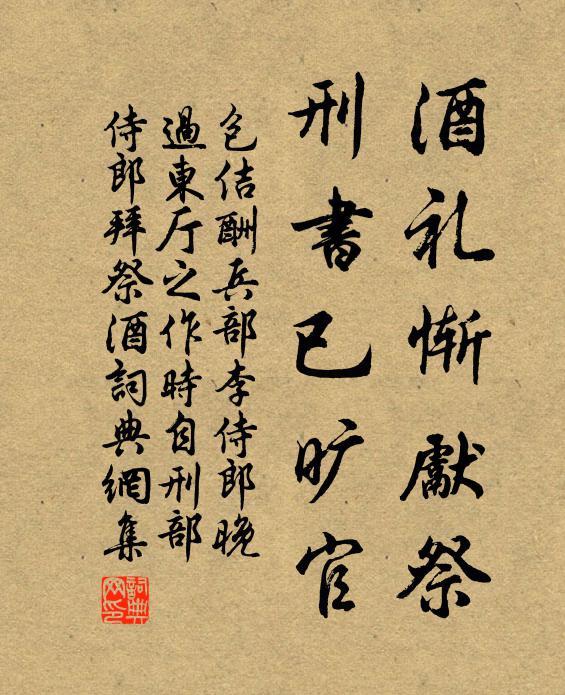 酒礼惭獻祭
刑書已旷官
包佶酬兵部李侍郎晚
過東厅之作時自刑部
侍郎拜祭酒詞典網集
詞典网印